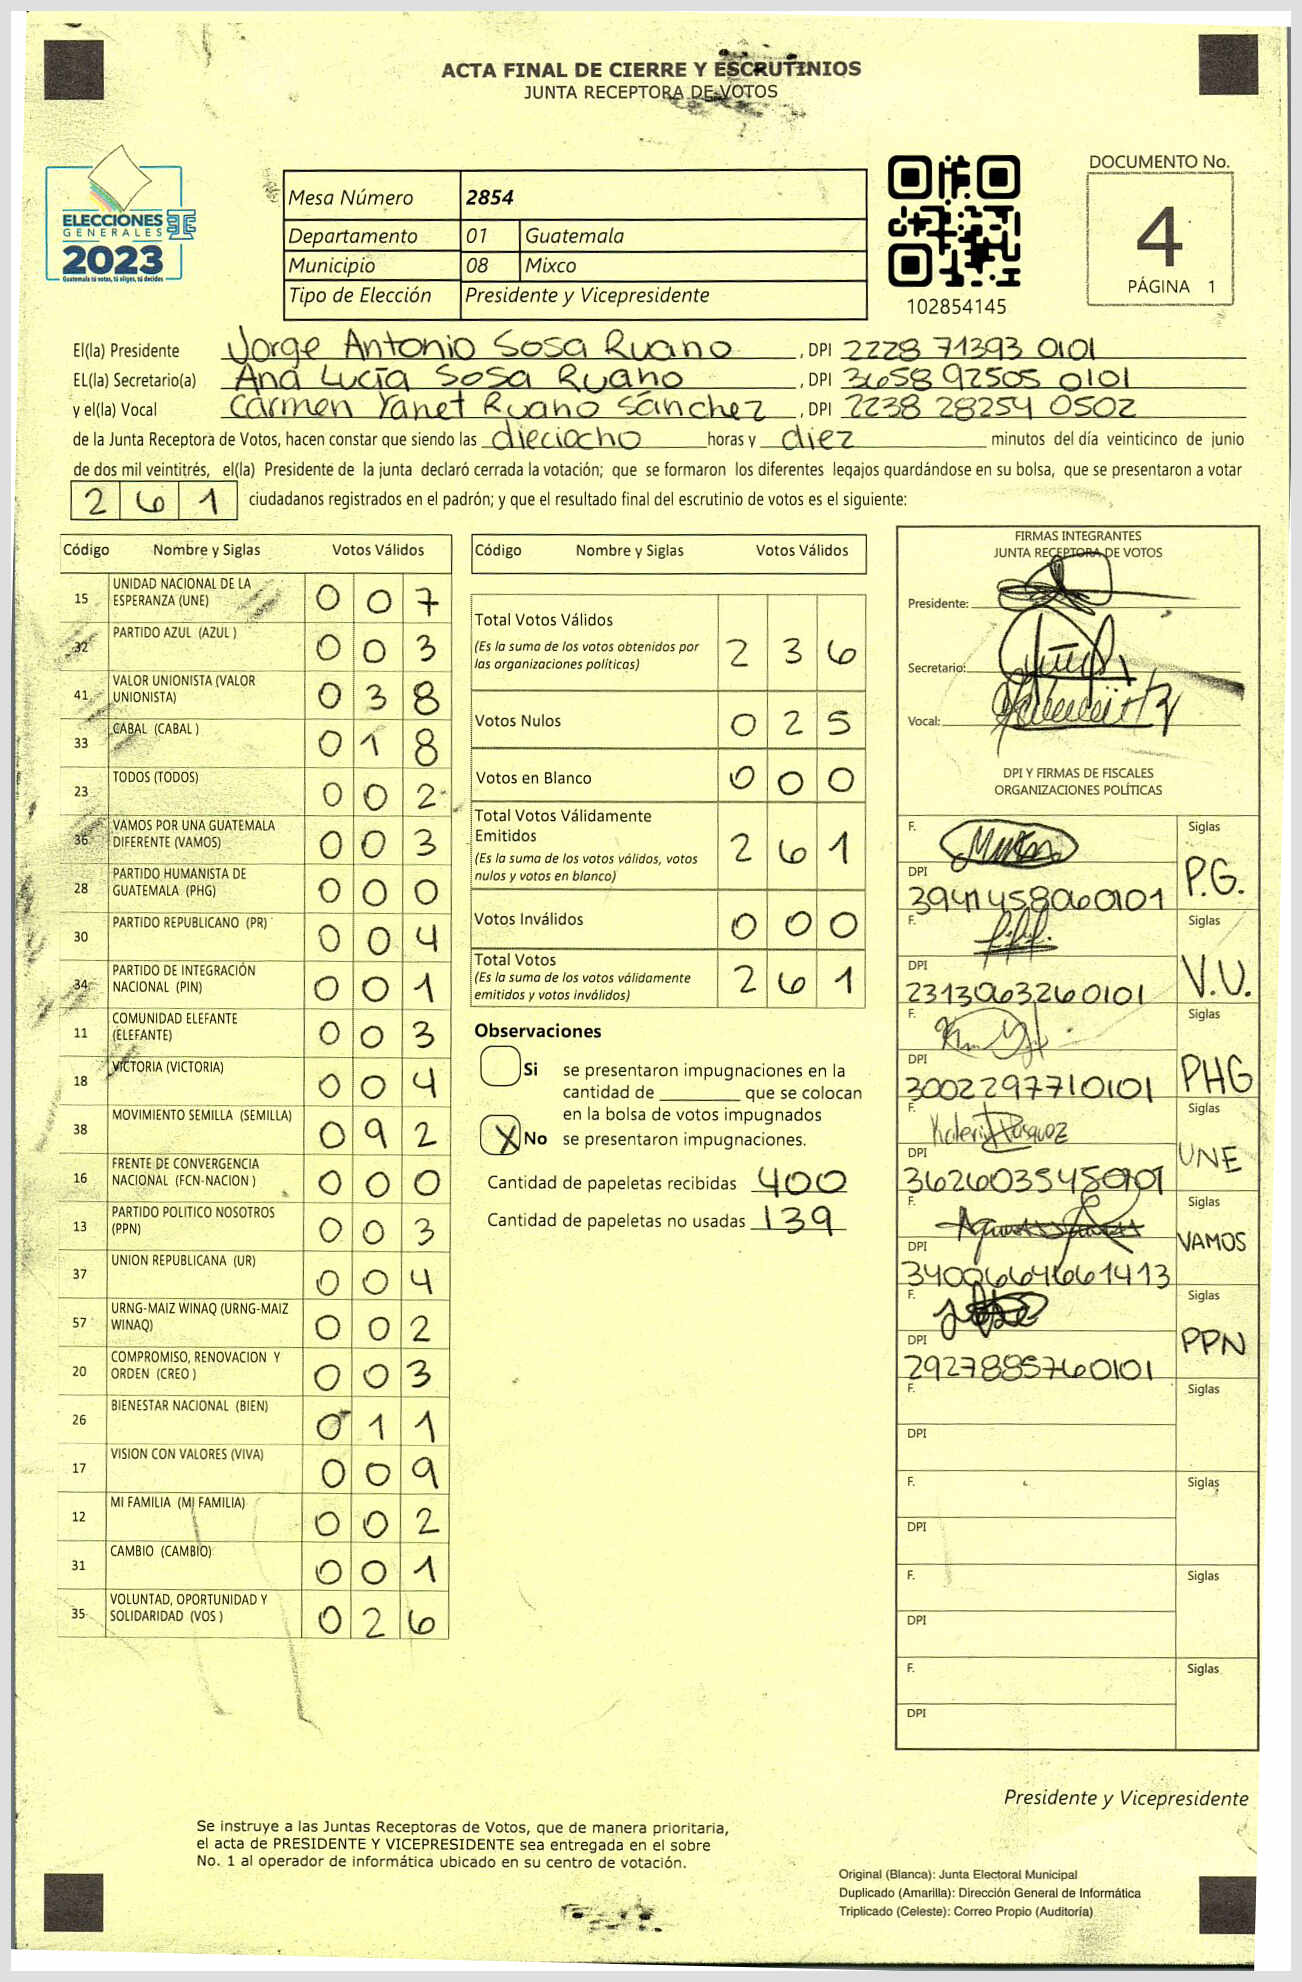 ACTA FINAL DE CIERRE Y ESCRUTINIOS
JUNTA RECEPTORA DE VOTOS
ELECCIONES
GENERALES
2023
Guatemala tú votas, tú eliges, tú decides
Mesa Número 2854
Departamento 01 Guatemala
Municipio 08 Mixco
Tipo de Elección Presidente y Vicepresidente
102854145
DOCUMENTO No.
4
PÁGINA 1
El(la) Presidente Jorge Antonio Sosa Ruano , DPI 2228 71393 0101
EL(la) Secretario(a) Ana Lucía Sosa Ruano , DPI 3658 92505 0101
y el(la) Vocal Carmen Yanet Ruano Sánchez , DPI 2238 28254 0502
de la Junta Receptora de Votos, hacen constar que siendo las dieciocho horas y diez minutos del día veinticinco de junio
de dos mil veintitrés, el(la) Presidente de la junta declaró cerrada la votación; que se formaron los diferentes legajos guardándose en su bolsa, que se presentaron a votar
261 ciudadanos registrados en el padrón; y que el resultado final del escrutinio de votos es el siguiente:
Código Nombre y Siglas Votos Válidos
15 UNIDAD NACIONAL DE LA ESPERANZA (UNE) 0 0 7
32 PARTIDO AZUL (AZUL ) 0 0 3
41 VALOR UNIONISTA (VALOR UNIONISTA) 0 3 8
33 CABAL (CABAL ) 0 1 8
23 TODOS (TODOS) 0 0 2
36 VAMOS POR UNA GUATEMALA DIFERENTE (VAMOS) 0 0 3
28 PARTIDO HUMANISTA DE GUATEMALA (PHG) 0 0 0
30 PARTIDO REPUBLICANO (PR) 0 0 4
34 PARTIDO DE INTEGRACIÓN NACIONAL (PIN) 0 0 1
11 COMUNIDAD ELEFANTE (ELEFANTE) 0 0 3
18 VICTORIA (VICTORIA) 0 0 4
38 MOVIMIENTO SEMILLA (SEMILLA) 0 9 2
16 FRENTE DE CONVERGENCIA NACIONAL (FCN-NACION ) 0 0 0
13 PARTIDO POLITICO NOSOTROS (PPN) 0 0 3
37 UNION REPUBLICANA (UR) 0 0 4
57 URNG-MAIZ WINAQ (URNG-MAIZ WINAQ) 0 0 2
20 COMPROMISO, RENOVACION Y ORDEN (CREO ) 0 0 3
26 BIENESTAR NACIONAL (BIEN) 0 1 1
17 VISION CON VALORES (VIVA) 0 0 9
12 MI FAMILIA (MI FAMILIA) 0 0 2
31 CAMBIO (CAMBIO) 0 0 1
35 VOLUNTAD, OPORTUNIDAD Y SOLIDARIDAD (VOS ) 0 2 6
Código Nombre y Siglas Votos Válidos
Total Votos Válidos 2 3 6
(Es la suma de los votos obtenidos por
las organizaciones políticas)
Votos Nulos 0 2 5
Votos en Blanco 0 0 0
Total Votos Válidamente
Emitidos 2 6 1
(Es la suma de los votos válidos, votos
nulos y votos en blanco)
Votos Inválidos 0 0 0
Total Votos 2 6 1
(Es la suma de los votos válidamente
emitidos y votos inválidos)
Observaciones
Si se presentaron impugnaciones en la
cantidad de ________ que se colocan
en la bolsa de votos impugnados
X No se presentaron impugnaciones.
Cantidad de papeletas recibidas 400
Cantidad de papeletas no usadas 139
FIRMAS INTEGRANTES
JUNTA RECEPTORA DE VOTOS
Presidente:
Secretario:
Vocal:
DPI Y FIRMAS DE FISCALES
ORGANIZACIONES POLÍTICAS
F. Siglas
DPI P.G.
3941458060101
F. Siglas
DPI V.U.
2313063260101
F. Siglas
DPI PHG
3002297710101
F. Siglas
DPI UNE
F. Siglas
DPI VAMOS
F. Siglas
DPI PPN
2927885760101
F. Siglas
DPI
F. Siglas
DPI
F. Siglas
DPI
F. Siglas
DPI
Presidente y Vicepresidente
Se instruye a las Juntas Receptoras de Votos, que de manera prioritaria,
el acta de PRESIDENTE Y VICEPRESIDENTE sea entregada en el sobre
No. 1 al operador de informática ubicado en su centro de votación.
Original (Blanca): Junta Electoral Municipal
Duplicado (Amarilla): Dirección General de Informática
Triplicado (Celeste): Correo Propio (Auditoría)